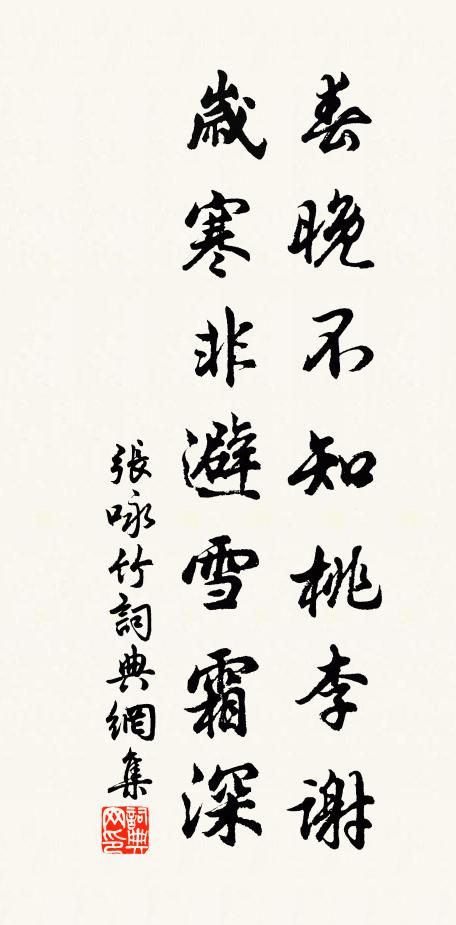 春晚不知桃李謝
歲寒非避雪霜深
張咏竹詞典網集
詞典网印